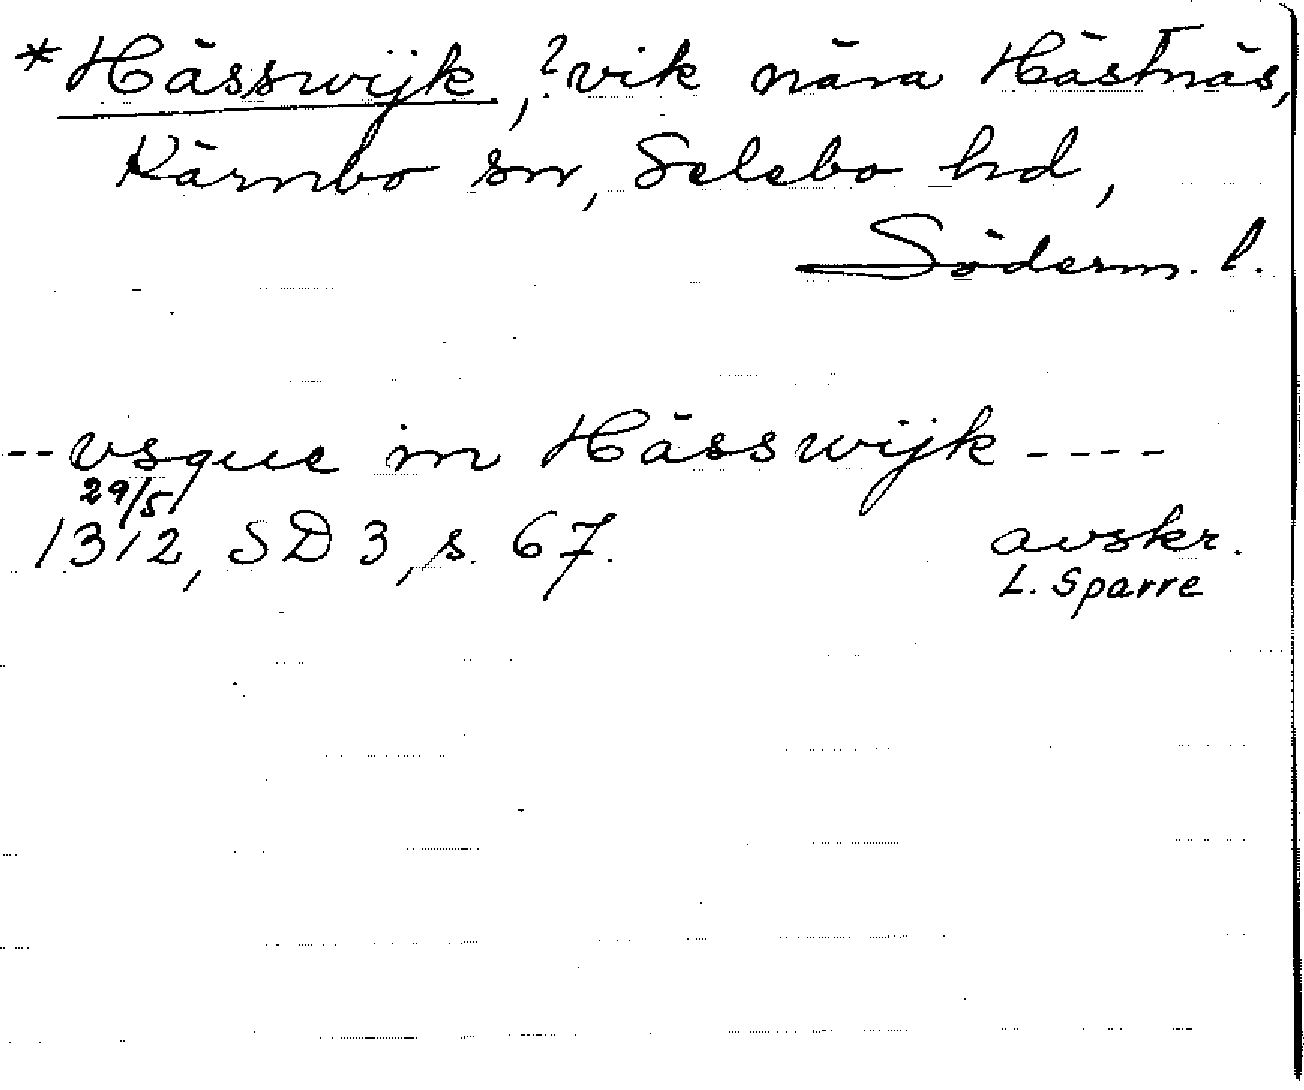 *Hässwijk, ?vik nära Hästnäs,
Kärnbo sn, Selebo hd,
Söderm. l.
--vsque in Hässwijk ----
29/5
1312, SD 3, s. 67. avskr.
L. Sparre